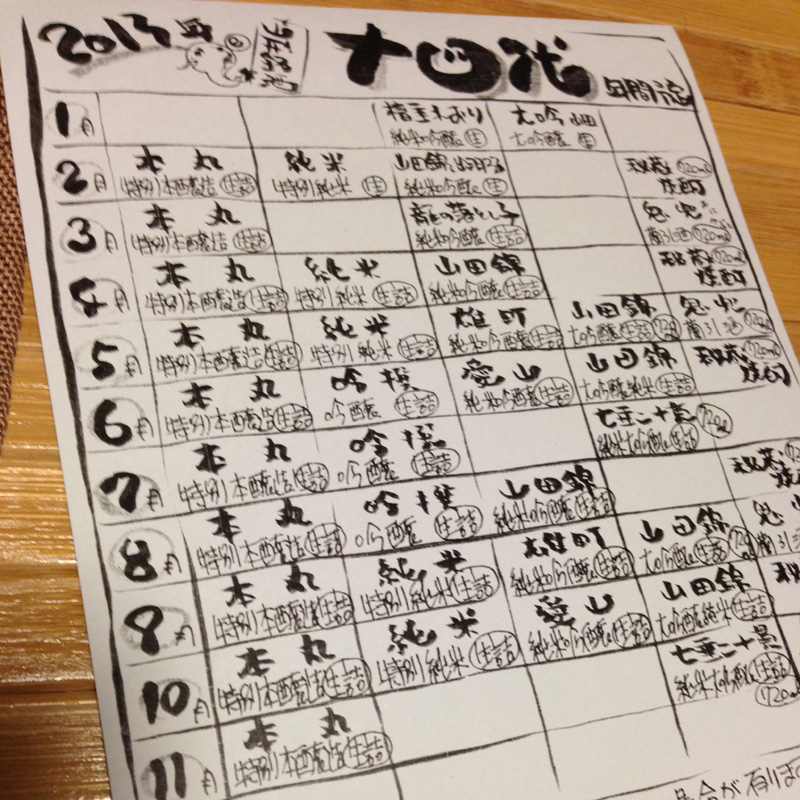 2013年
十四代
年間
1月
純米吟醸 生
大吟 山田
大吟醸 生
2月
本丸
特別本醸造 生詰
純米
特別純米 生
山田錦
純米吟醸 生
秘蔵 720ml
焼酎
3月
本丸
特別本醸造 生詰
龍の落とし子
純米吟醸 生詰
鬼兜
蘭引酒 720ml
4月
本丸
特別本醸造 生詰
純米
特別純米 生詰
山田錦
純米吟醸 生詰
秘蔵 720ml
焼酎
5月
本丸
特別本醸造 生詰
純米
特別純米 生詰
雄町
純米吟醸 生詰
山田錦
大吟醸 生詰
鬼兜
蘭引酒
6月
本丸
特別本醸造 生詰
吟撰
吟醸 生詰
愛山
純米吟醸 生詰
山田錦
大吟醸純米 生詰
秘蔵 720ml
焼酎
7月
本丸
特別本醸造 生詰
吟撰
吟醸 生詰
七垂二十貫
純米大吟醸 生詰 720
8月
本丸
特別本醸造 生詰
吟撰
吟醸 生詰
山田錦
純米吟醸 生詰
秘蔵
焼酎
9月
本丸
特別本醸造 生詰
純米
特別純米 生詰
雄町
純米吟醸 生詰
山田錦
大吟醸 生詰
鬼兜
蘭引酒
10月
本丸
特別本醸造 生詰
純米
特別純米 生詰
愛山
純米吟醸 生詰
山田錦
大吟醸純米 生詰
11月
本丸
特別本醸造 生詰
七垂二十貫
純米大吟醸 生詰
720ml